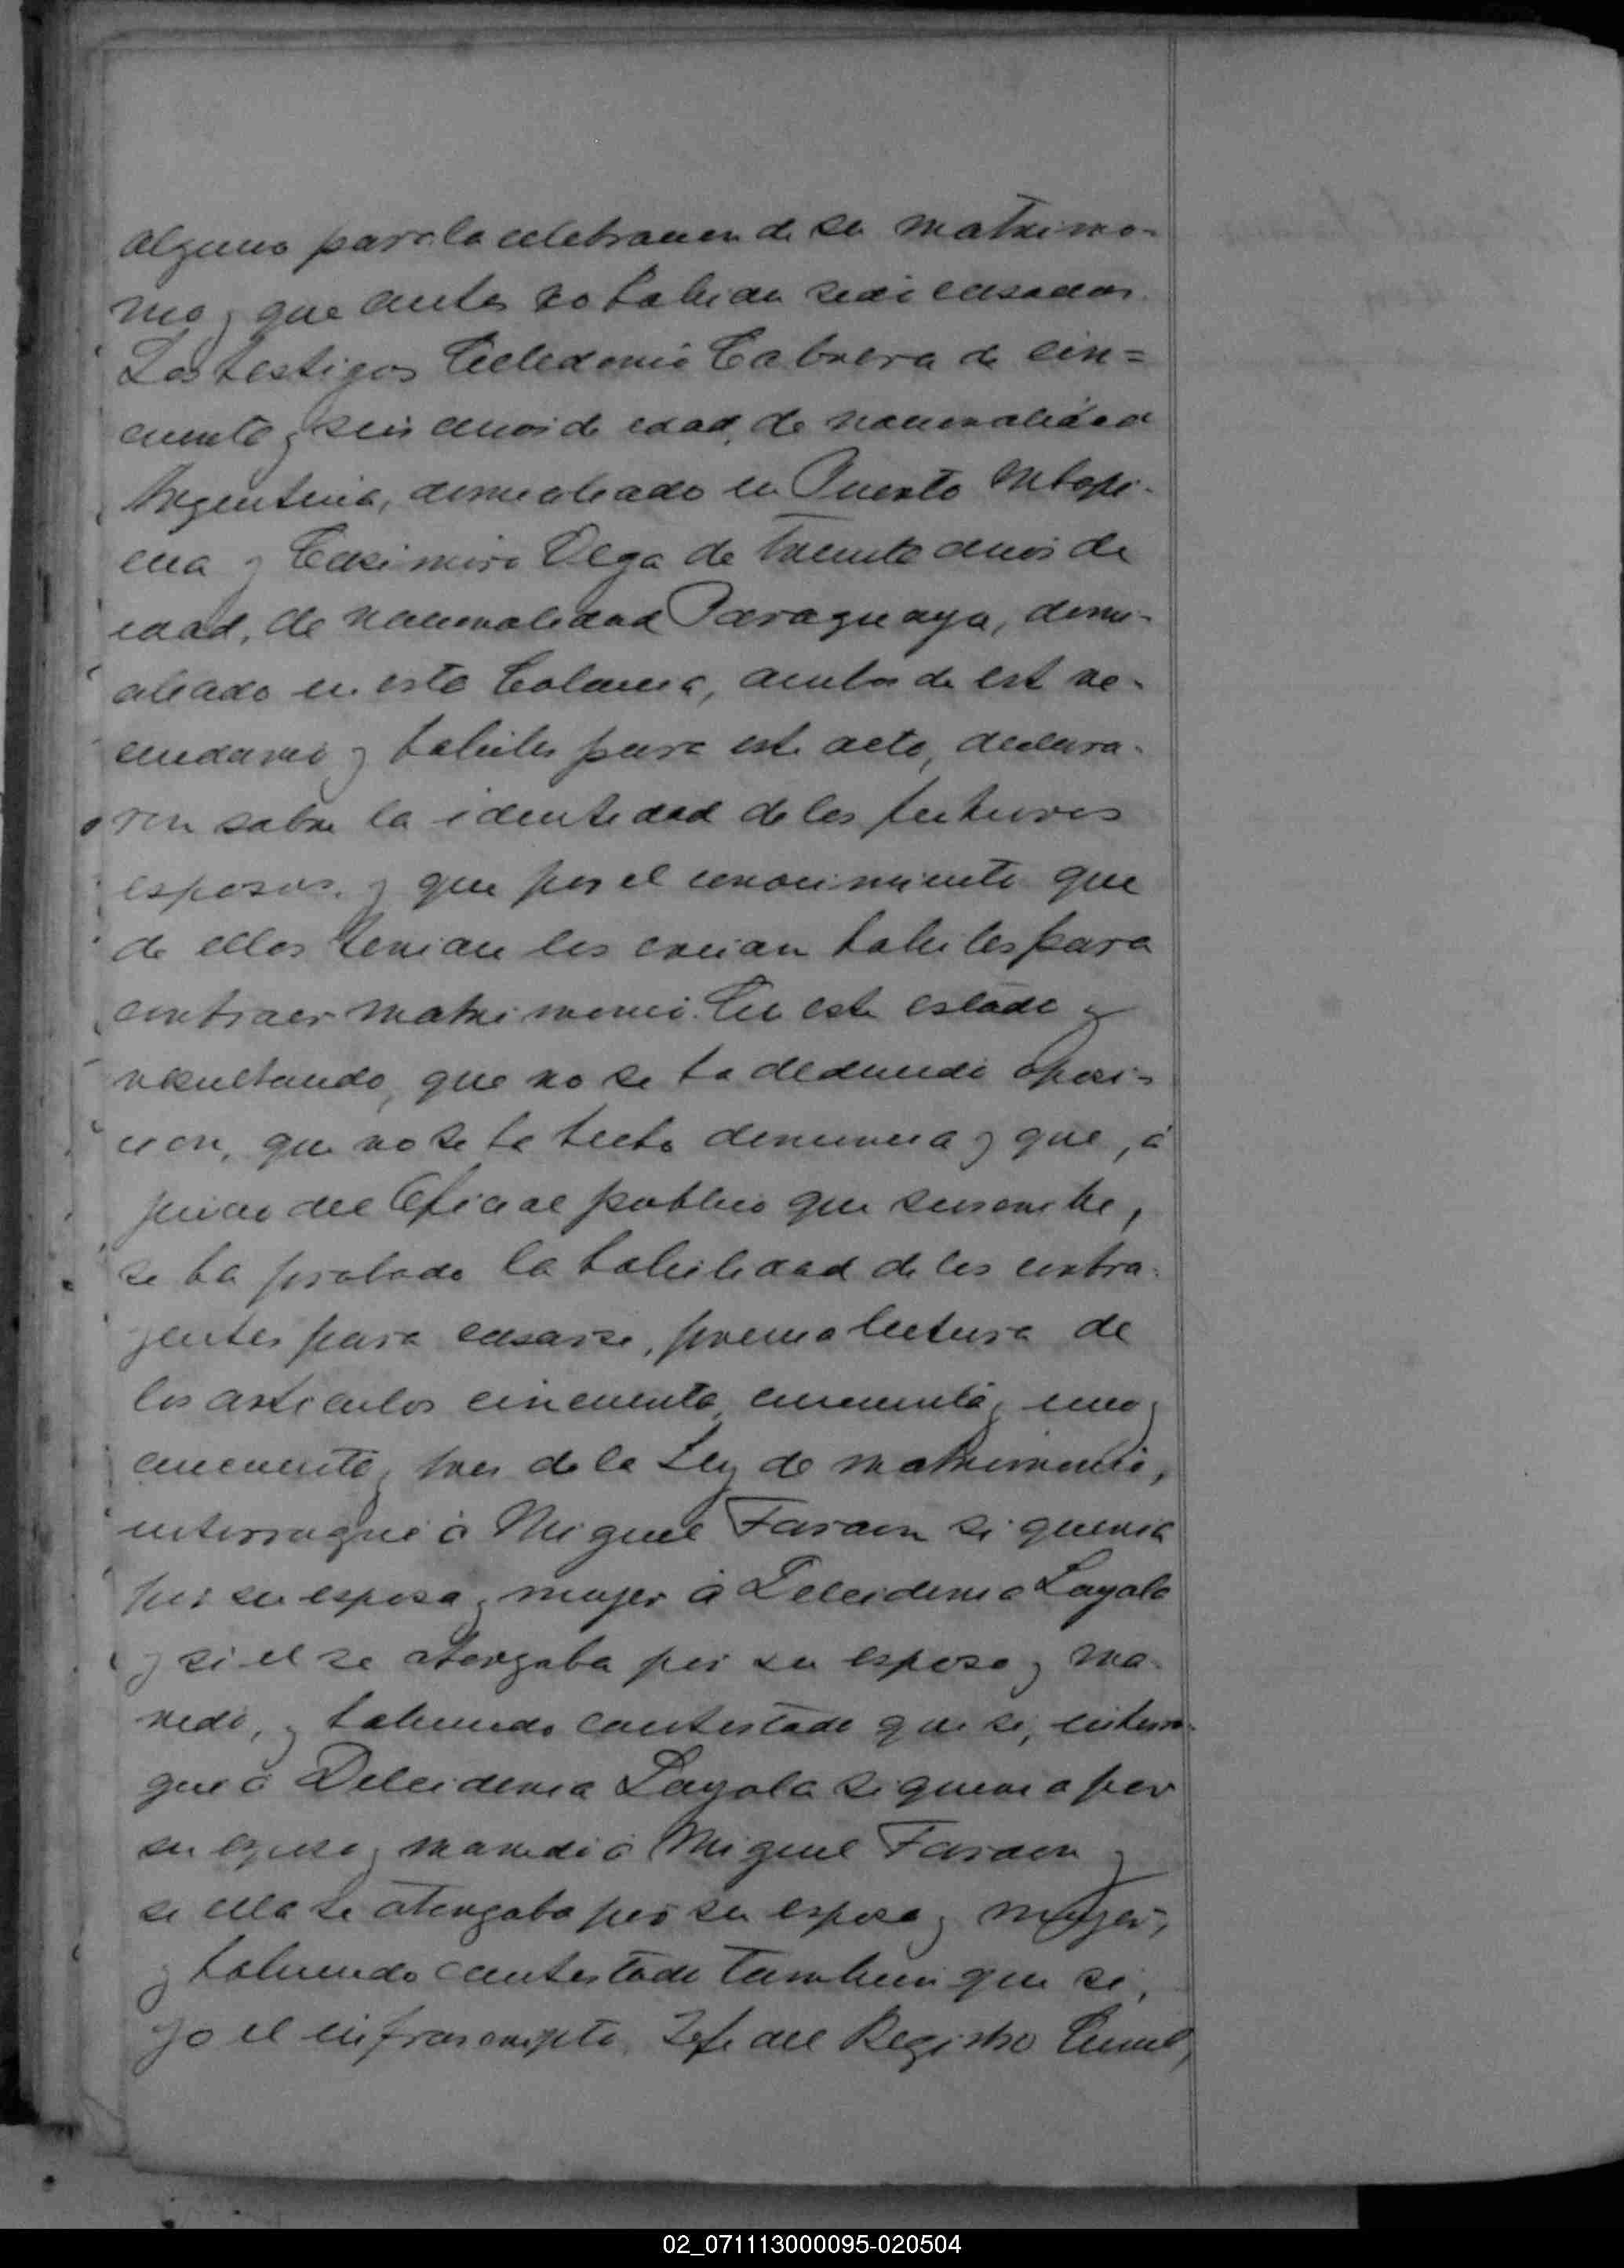 alguno para la celebracion de su matrimo-
nio y que antes no habian sido casados.
Los testigos Celedonio Cabrera de cin=
cuenta y seis años de edad, de nacionalidad
Argentina, domiciliado en Puerto Mbopi-
cua y Casimiro Vega de treinta años de
edad, de nacionalidad Paraguaya, domi-
ciliado en esta Colonia, ambos de este ve-
cindario y habiles para este acto, declara-
ron sobre la identidad de los futuros
esposos y que por el conocimiento que
de ellos tenian los creian habiles para
contraer matrimonio. En este estado y
resultando, que no se ha deducido oposi-
cion, que no se ha hecho denuncia y que, á
juicio del Oficial publico que suscribe,
se ha probado la habilidad de los contra-
yentes para casarse, previa lectura de
los articulos cincuenta, cincuenta y uno y
cincuenta y tres de la Ley de matrimonio,
interrogué á Miguel Faraon si queria
por su esposa y mujer á Deleidemia Layola
y si el se otorgaba por su esposo y ma-
rido, y habiendo contestado que si, interro-
gué á Deleidemia Layola si queria por
su esposo y marido á Miguel Faraon y
si ella se otorgaba por su esposa y mujer,
y habiendo contestado tambien que si,
yo el infrascripto, Jefe del Registro Civil,
02_071113000095-020504